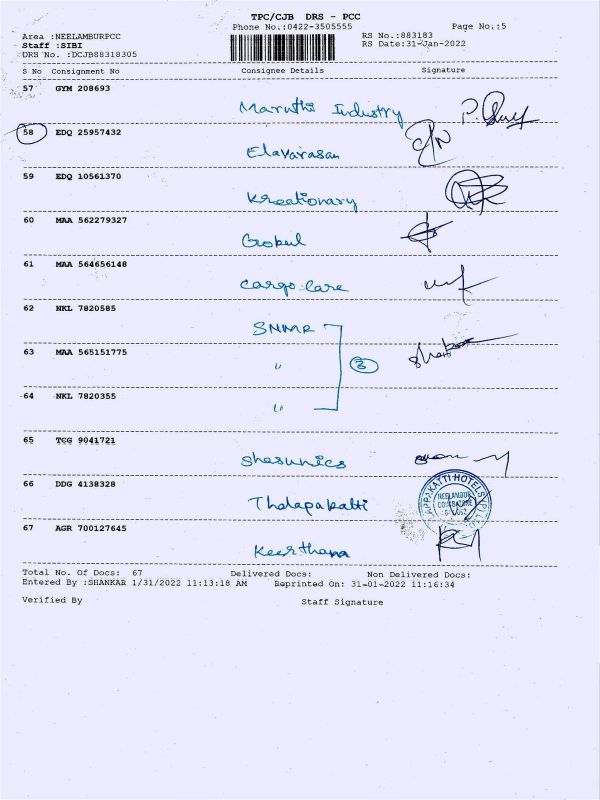 TPC/CJB DRS - PCC
Phone No.:0422-3505555 Page No.:5
Area :NEELAMBURPCC RS No.:883183
Staff :SIBI RS Date:31-Jan-2022
DRS No. :DCJB88318305
S No Consignment No Consignee Details Signature
57 GYM 208693
Maruthi Industry
58 EDQ 25957432
Elavarasan
59 EDQ 10561370
Kreationary
60 MAA 562279327
Gokul
61 MAA 564656148
Cargo Care
62 NKL 7820585
SNMR
63 MAA 565151775
" 3
64 NKL 7820355
"
65 TCG 9041721
Shasunics
66 DDG 4138328
Thalapakatti
NEELAMBUR
COIMBATORE
67 AGR 700127645
Keerthana
Total No. Of Docs: 67 Delivered Docs: Non Delivered Docs:
Entered By :SHANKAR 1/31/2022 11:13:18 AM Reprinted On: 31-01-2022 11:16:34
Verified By Staff Signature